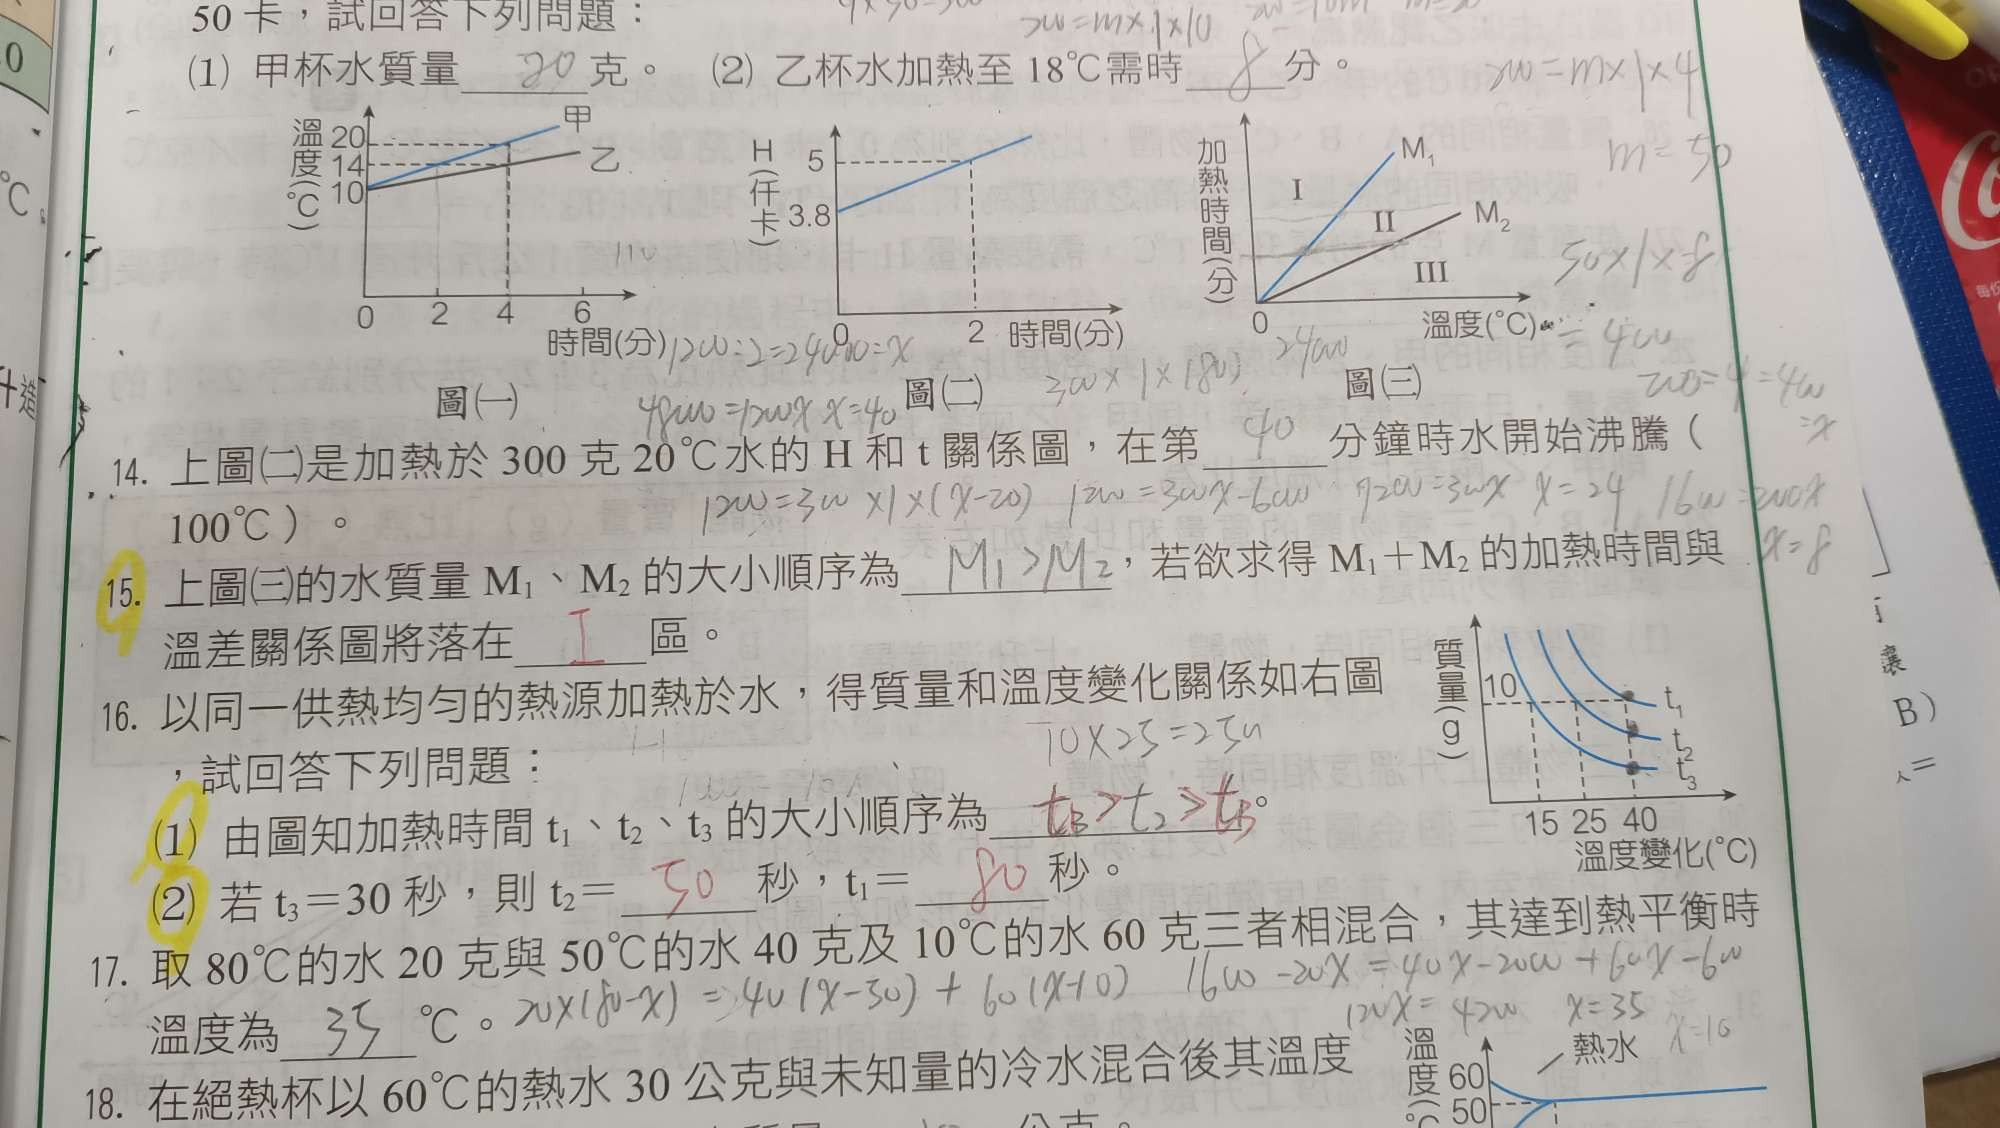 50 卡，試回答下列問題：
(1) 甲杯水質量 20 克。 (2) 乙杯水加熱至 18℃需時 8 分。
200=m×1×10
200=m×1×4
m=50
50×1×8
=400
200=4=400
=x
1600=200x
x=8
溫度(℃)
20
14
10
甲
乙
0 2 4 6
時間(分)
圖㈠
H(仟卡)
5
3.8
0 2 時間(分)
圖㈡
加熱時間(分)
I
II
III
M₁
M₂
0 溫度(℃)
圖㈢
1200÷2=2400=x
4800=1200x x=40
300×1×(80)
2400
14. 上圖㈡是加熱於 300 克 20℃水的 H 和 t 關係圖，在第 40 分鐘時水開始沸騰（
100℃）。
1200=300×1×(x-20) 1200=300x-6000 7200=300x x=24
15. 上圖㈢的水質量 M₁、M₂ 的大小順序為 M₁>M₂，若欲求得 M₁＋M₂ 的加熱時間與
溫差關係圖將落在 I 區。
16. 以同一供熱均勻的熱源加熱於水，得質量和溫度變化關係如右圖
，試回答下列問題：
10×25=250
(1) 由圖知加熱時間 t₁、t₂、t₃ 的大小順序為 t₁>t₂>t₃。
(2) 若 t₃＝30 秒，則 t₂＝ 50 秒，t₁＝ 80 秒。
質量(g)
10
t₁
t₂
t₃
15 25 40
溫度變化(℃)
17. 取 80℃的水 20 克與 50℃的水 40 克及 10℃的水 60 克三者相混合，其達到熱平衡時
溫度為 35 ℃。
20×(80-x)=40(x-50)+60(x-10)
1600-20x=40x-2000+60x-600
120x=4200 x=35
x=10
18. 在絕熱杯以 60℃的熱水 30 公克與未知量的冷水混合後其溫度
公克。
溫度(℃
60
50
熱水